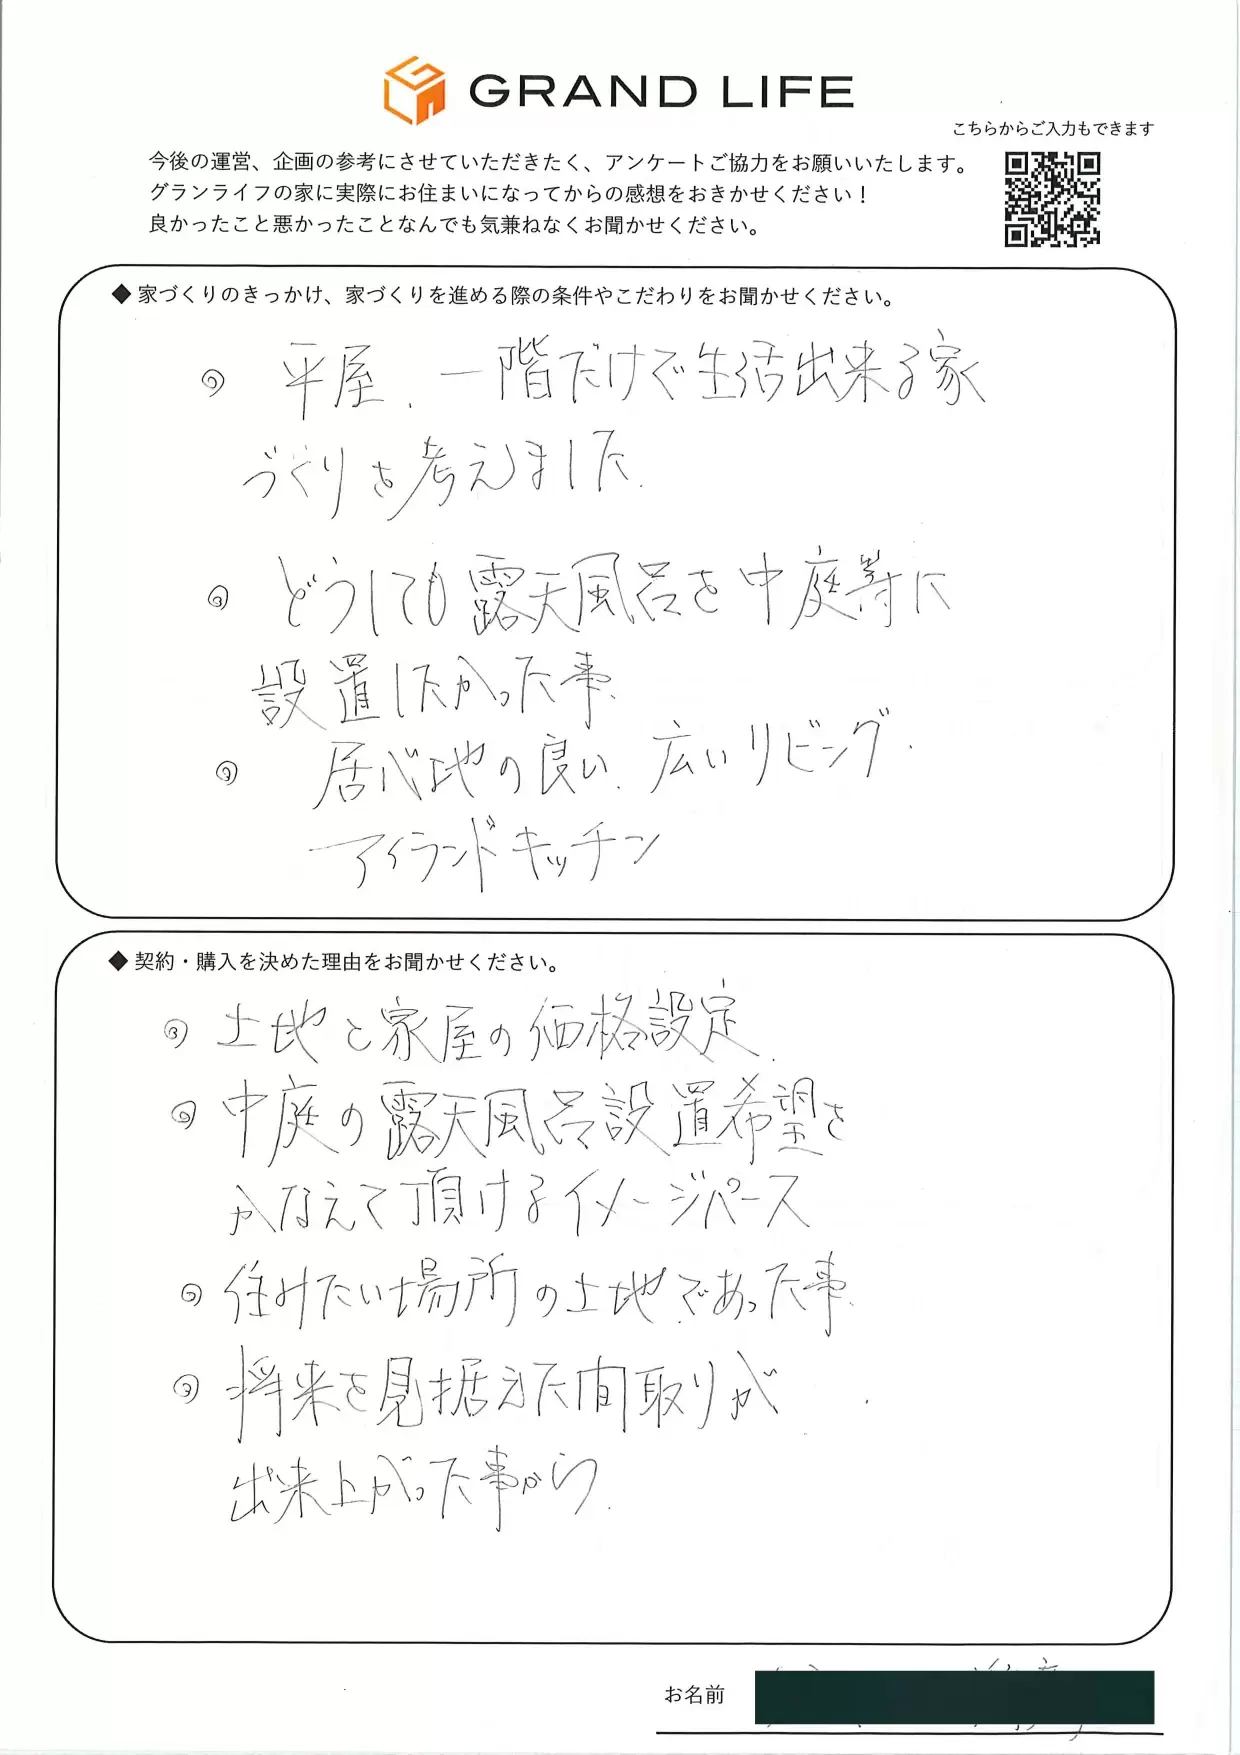 GRAND LIFE
こちらからご入力もできます
今後の運営、企画の参考にさせていただきたく、アンケートご協力をお願いいたします。
グランライフの家に実際にお住まいになってからの感想をおきかせください！
良かったこと悪かったことなんでも気兼ねなくお聞かせください。
◆ 家づくりのきっかけ、家づくりを進める際の条件やこだわりをお聞かせください。
◎ 平屋、一階だけで生活出来る家
づくりを考えました.
◎ どうしても露天風呂を中庭等に
設置したかった事、
◎ 居心地の良い、広いリビング.
アイランドキッチン
◆ 契約・購入を決めた理由をお聞かせください。
◎ 土地と家屋の価格設定、
◎ 中庭の露天風呂設置希望を
かなえて頂けるイメージパース
◎ 住みたい場所の土地であった事、
◎ 将来を見据えた間取りが
出来上がった事から.
お名前